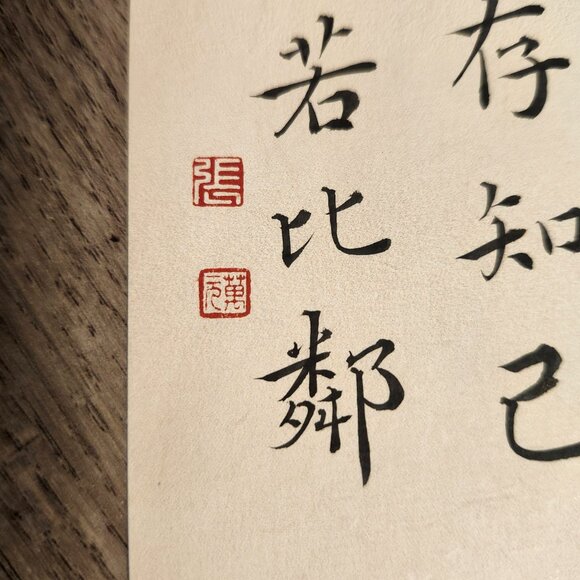 存知己
若比鄰
張